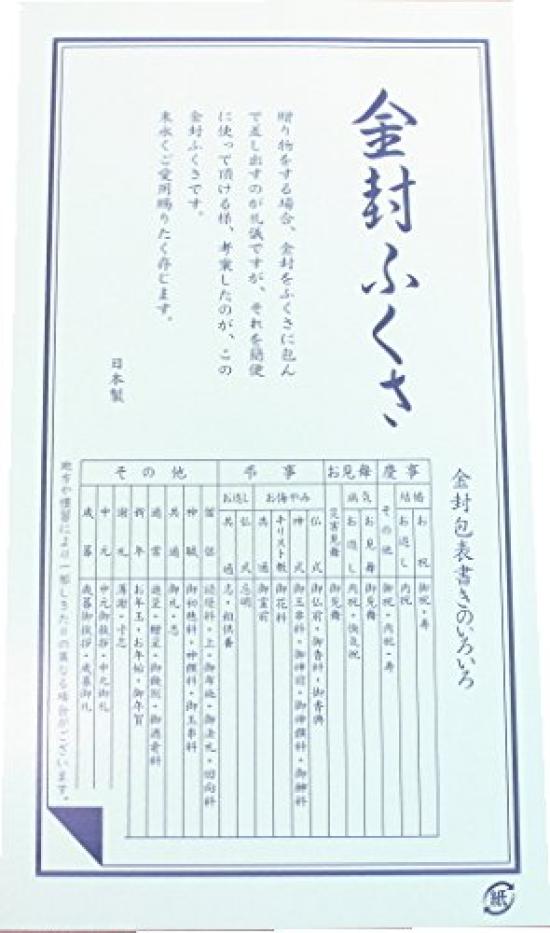 金封ふくさ
贈り物をする場合、金封をふくさに包ん
で差し出すのが礼儀ですが、それを簡便
に使って頂ける様、考案したのが、この
金封ふくさです。
末永くご愛用賜りたく存じます。
日本製
金封包表書きのいろいろ
慶事
結婚
お祝 御祝・寿
お返し 内祝
その他 御祝・内祝・寿
お見舞
病気
お見舞 御見舞
お返し 内祝・快気祝
災害見舞 御見舞
弔事
お悔やみ
仏式 御仏前・御香料・御香典
神式 御玉串料・御神前・御神饌料・御榊料
キリスト教 御花料
共通 御霊前
お返し
仏式 忌明
共通 志・粗供養
その他
僧侶 読経料・上・御布施・御法礼・回向料
神職 御初穂料・神饌料・御玉串料
共通 御礼・志
通常 進呈・贈呈・御餞別・御酒肴料
新年 お年玉・お年始・御年賀
謝礼 薄謝・寸志
中元 中元御挨拶・中元御礼
歳暮 歳暮御挨拶・歳暮御礼
地方や慣習により一部しきたりの異なる場合がございます。
紙